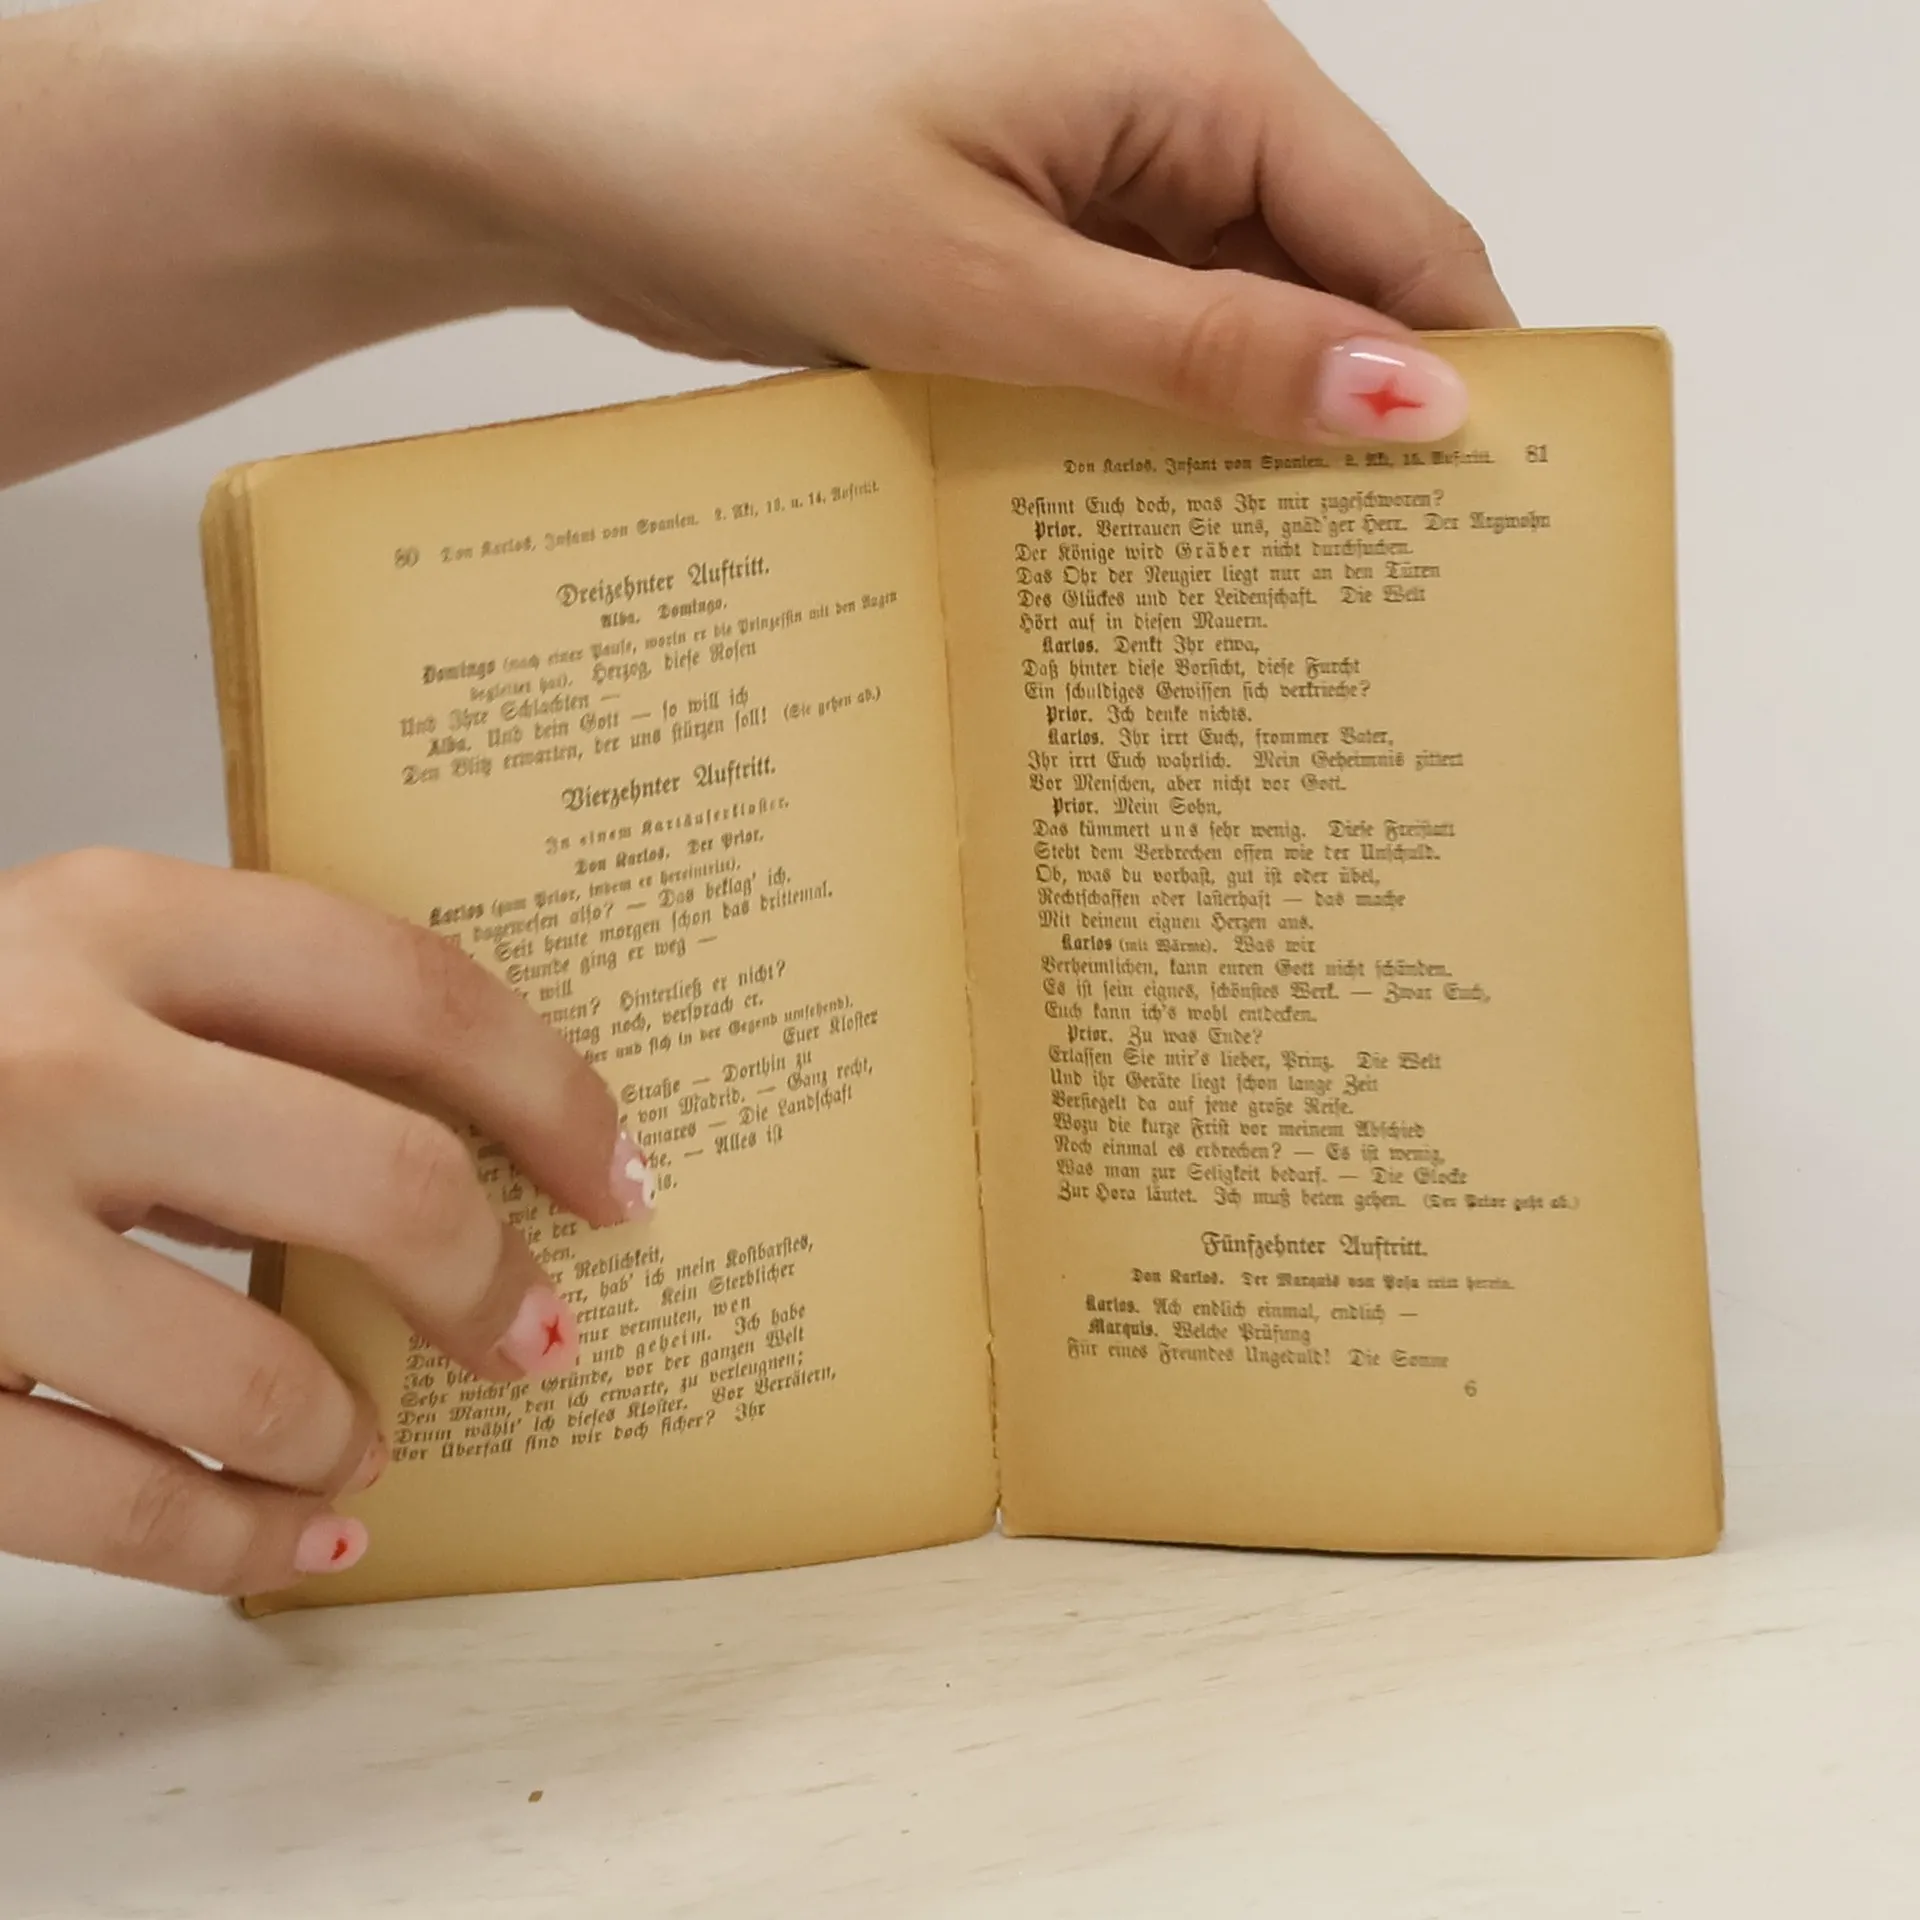 80 Don Karlos, Infant von Spanien. 2. Akt, 13. u. 14. Auftritt.
Dreizehnter Auftritt.
Alba. Domingo.
Domingo (nach einer Pause, worin er die Prinzessin mit den Augen
begleitet hat). Herzog, diese Rosen
Und Ihre Schlachten —
Alba. Und dein Gott — so will ich
Den Blitz erwarten, der uns stürzen soll! (Sie gehen ab.)
Vierzehnter Auftritt.
In einem Kartäuserkloster.
Don Karlos. Der Prior.
Karlos (zum Prior, indem er hereintritt).
dagewesen also? — Das beklag' ich.
Seit heute morgen schon das drittemal.
Stunde ging er weg —
will
Hinterließ er nicht?
noch, versprach er.
und sich in der Gegend umsehend).
Euer Kloster
Straße — Dorthin zu
von Madrid. — Ganz recht,
— Die Landschaft
— Alles ist
ich
wie
der
Redlichkeit,
hab' ich mein Kostbarstes,
Kein Sterblicher
nur vermuten, wen
und geheim. Ich habe
Sehr wicht'ge Gründe, vor der ganzen Welt
Den Mann, den ich erwarte, zu verleugnen;
Drum wählt' ich dieses Kloster. Vor Verrätern,
Vor Überfall sind wir doch sicher? Ihr
Don Karlos, Infant von Spanien. 2. Akt, 15. Auftritt. 81
Besinnt Euch doch, was Ihr mir zugeschworen?
Prior. Vertrauen Sie uns, gnäd'ger Herr. Der Argwohn
Der Könige wird Gräber nicht durchsuchen.
Das Ohr der Neugier liegt nur an den Türen
Des Glückes und der Leidenschaft. Die Welt
Hört auf in diesen Mauern.
Karlos. Denkt Ihr etwa,
Daß hinter diese Vorsicht, diese Furcht
Ein schuldiges Gewissen sich verkrieche?
Prior. Ich denke nichts.
Karlos. Ihr irrt Euch, frommer Vater,
Ihr irrt Euch wahrlich. Mein Geheimnis zittert
Vor Menschen, aber nicht vor Gott.
Prior. Mein Sohn,
Das kümmert uns sehr wenig. Diese Freistatt
Steht dem Verbrechen offen wie der Unschuld.
Ob, was du vorhast, gut ist oder übel,
Rechtschaffen oder lasterhaft — das mache
Mit deinem eignen Herzen aus.
Karlos (mit Wärme). Was wir
Verheimlichen, kann euren Gott nicht schänden.
Es ist sein eignes, schönstes Werk. — Zwar Euch,
Euch kann ich's wohl entdecken.
Prior. Zu was Ende?
Erlassen Sie mir's lieber, Prinz. Die Welt
Und ihr Geräte liegt schon lange Zeit
Versiegelt da auf jene große Reise.
Wozu die kurze Frist vor meinem Abschied
Noch einmal es erbrechen? — Es ist wenig,
Was man zur Seligkeit bedarf. — Die Glocke
Zur Hora läutet. Ich muß beten gehen. (Der Prior geht ab.)
Fünfzehnter Auftritt.
Don Karlos. Der Marquis von Posa tritt herein.
Karlos. Ach endlich einmal, endlich —
Marquis. Welche Prüfung
Für eines Freundes Ungeduld! Die Sonne
6